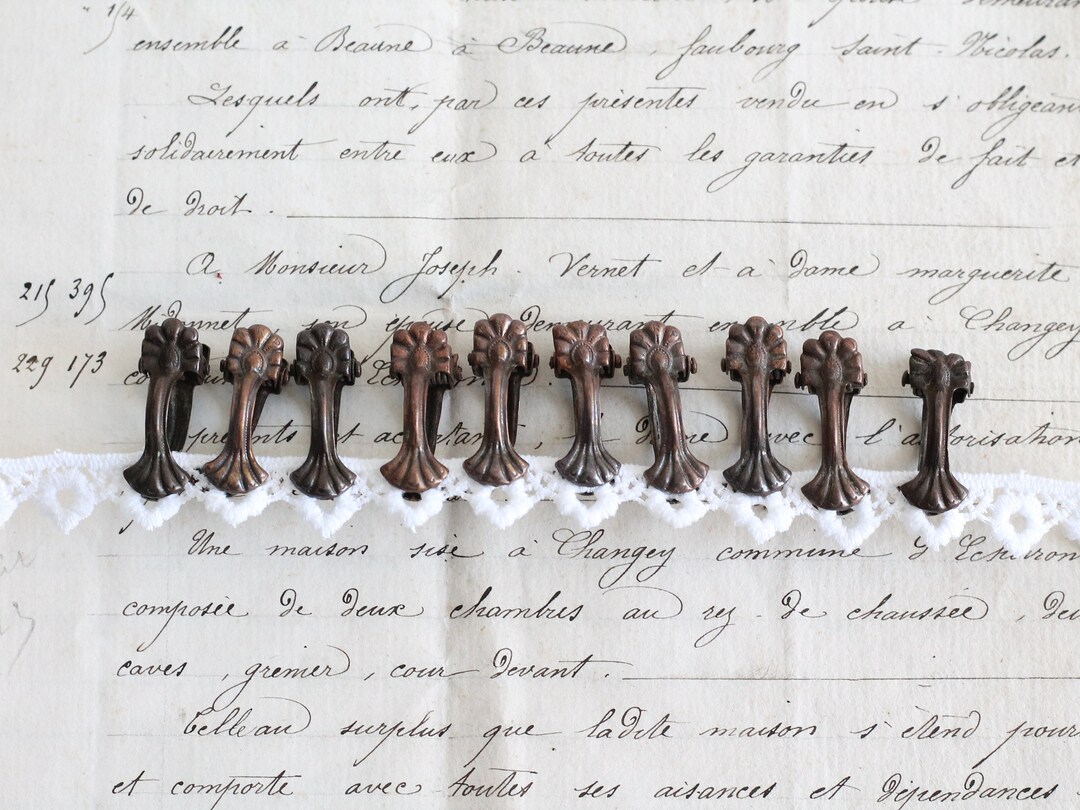 1/4
ensemble à Beaune à Beaune, faubourg Saint-Nicolas.
Lesquels ont, par ces présentes vendu en s'obligeant
solidairement entre eux à toutes les garanties de fait et
de droit.
A Monsieur Joseph Vernet et à dame marguerite
215 395
son épouse Demeurant ensemble à Changey
229 173
présents et acceptant, la Dame avec l'autorisation
Une maison sise à Changey commune d'Echaron
composée de deux chambres au rez-de chaussée, deu
caves, grenier, cour devant.
Telle au surplus que ladite maison s'étend pour
et comporte avec toutes ses aisances et dépendances.